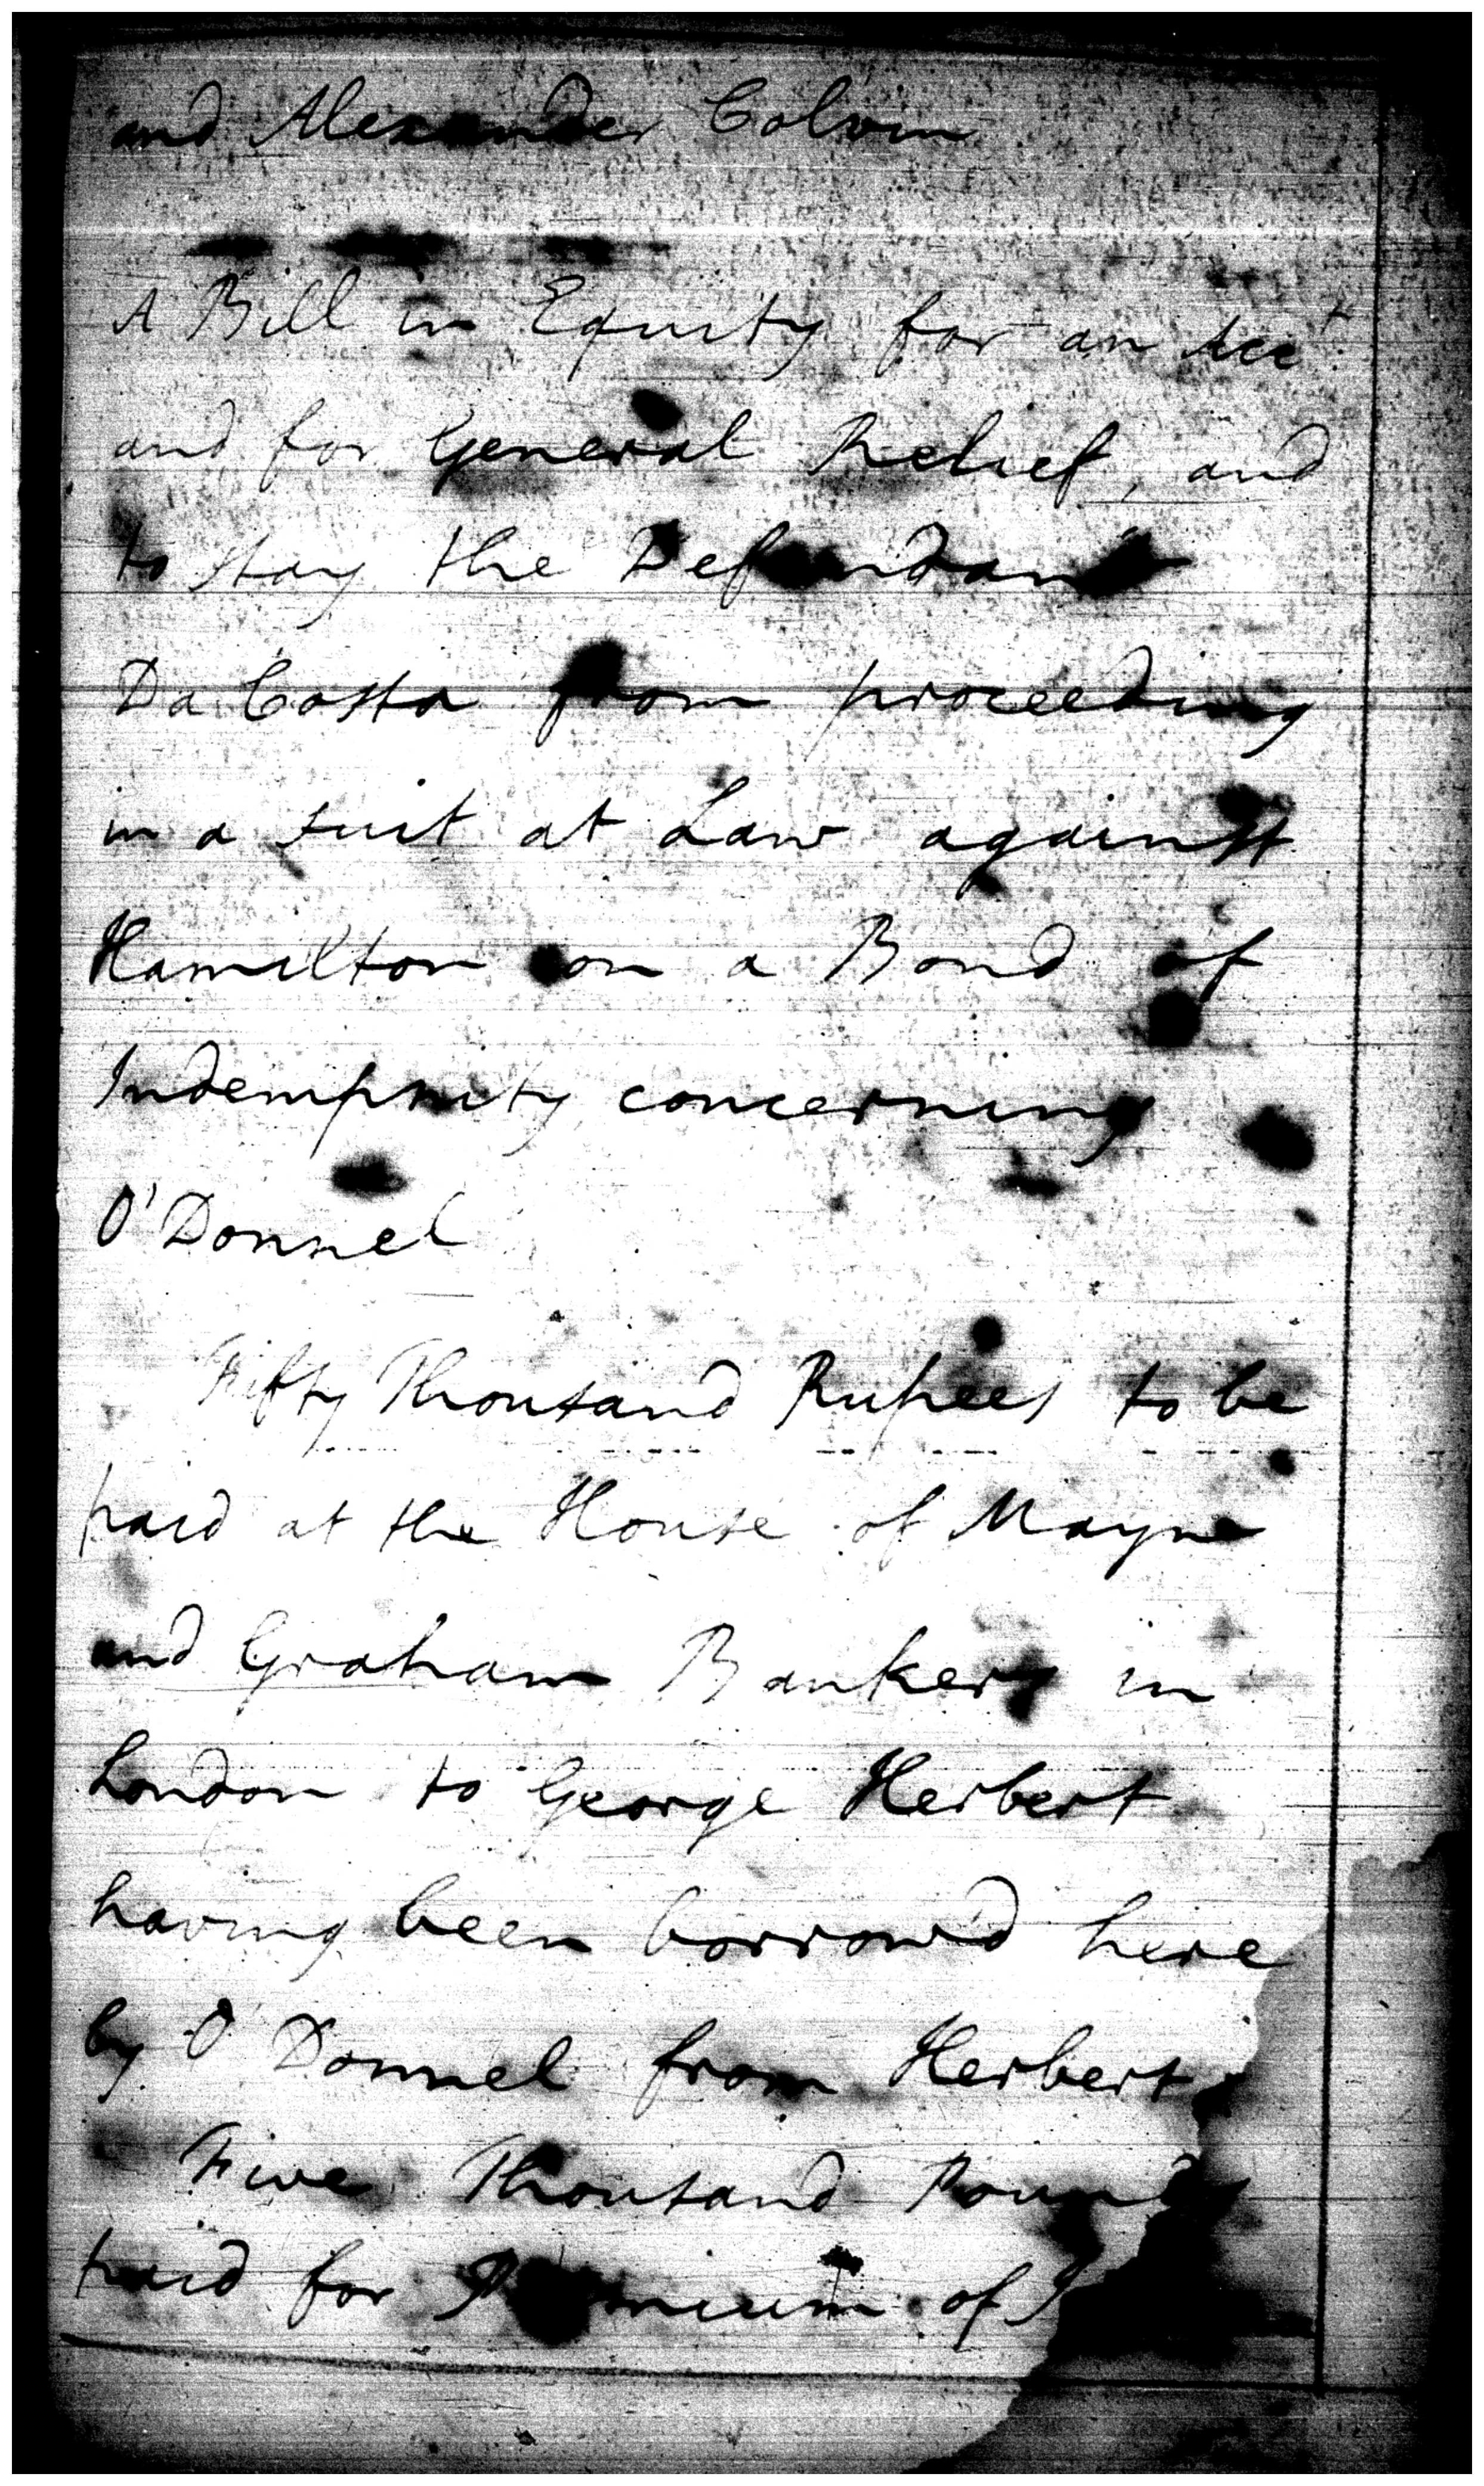 and Alexander Colvin
A Bill in Equity for an Acct.
and for General Relief, and
to stay the Defendant
Da Costa from proceeding
in a suit at Law against
Hamilton on a Bond of
Indempnity concerning
O'Donnel
Fifty Thousand Rupees to be
paid at the House of Mayne
and Graham Bankers in
London to George Herbert
having been borrow'd here
by O'Donnel from Herbert
Five Thousand Pounds
paid for Premium of